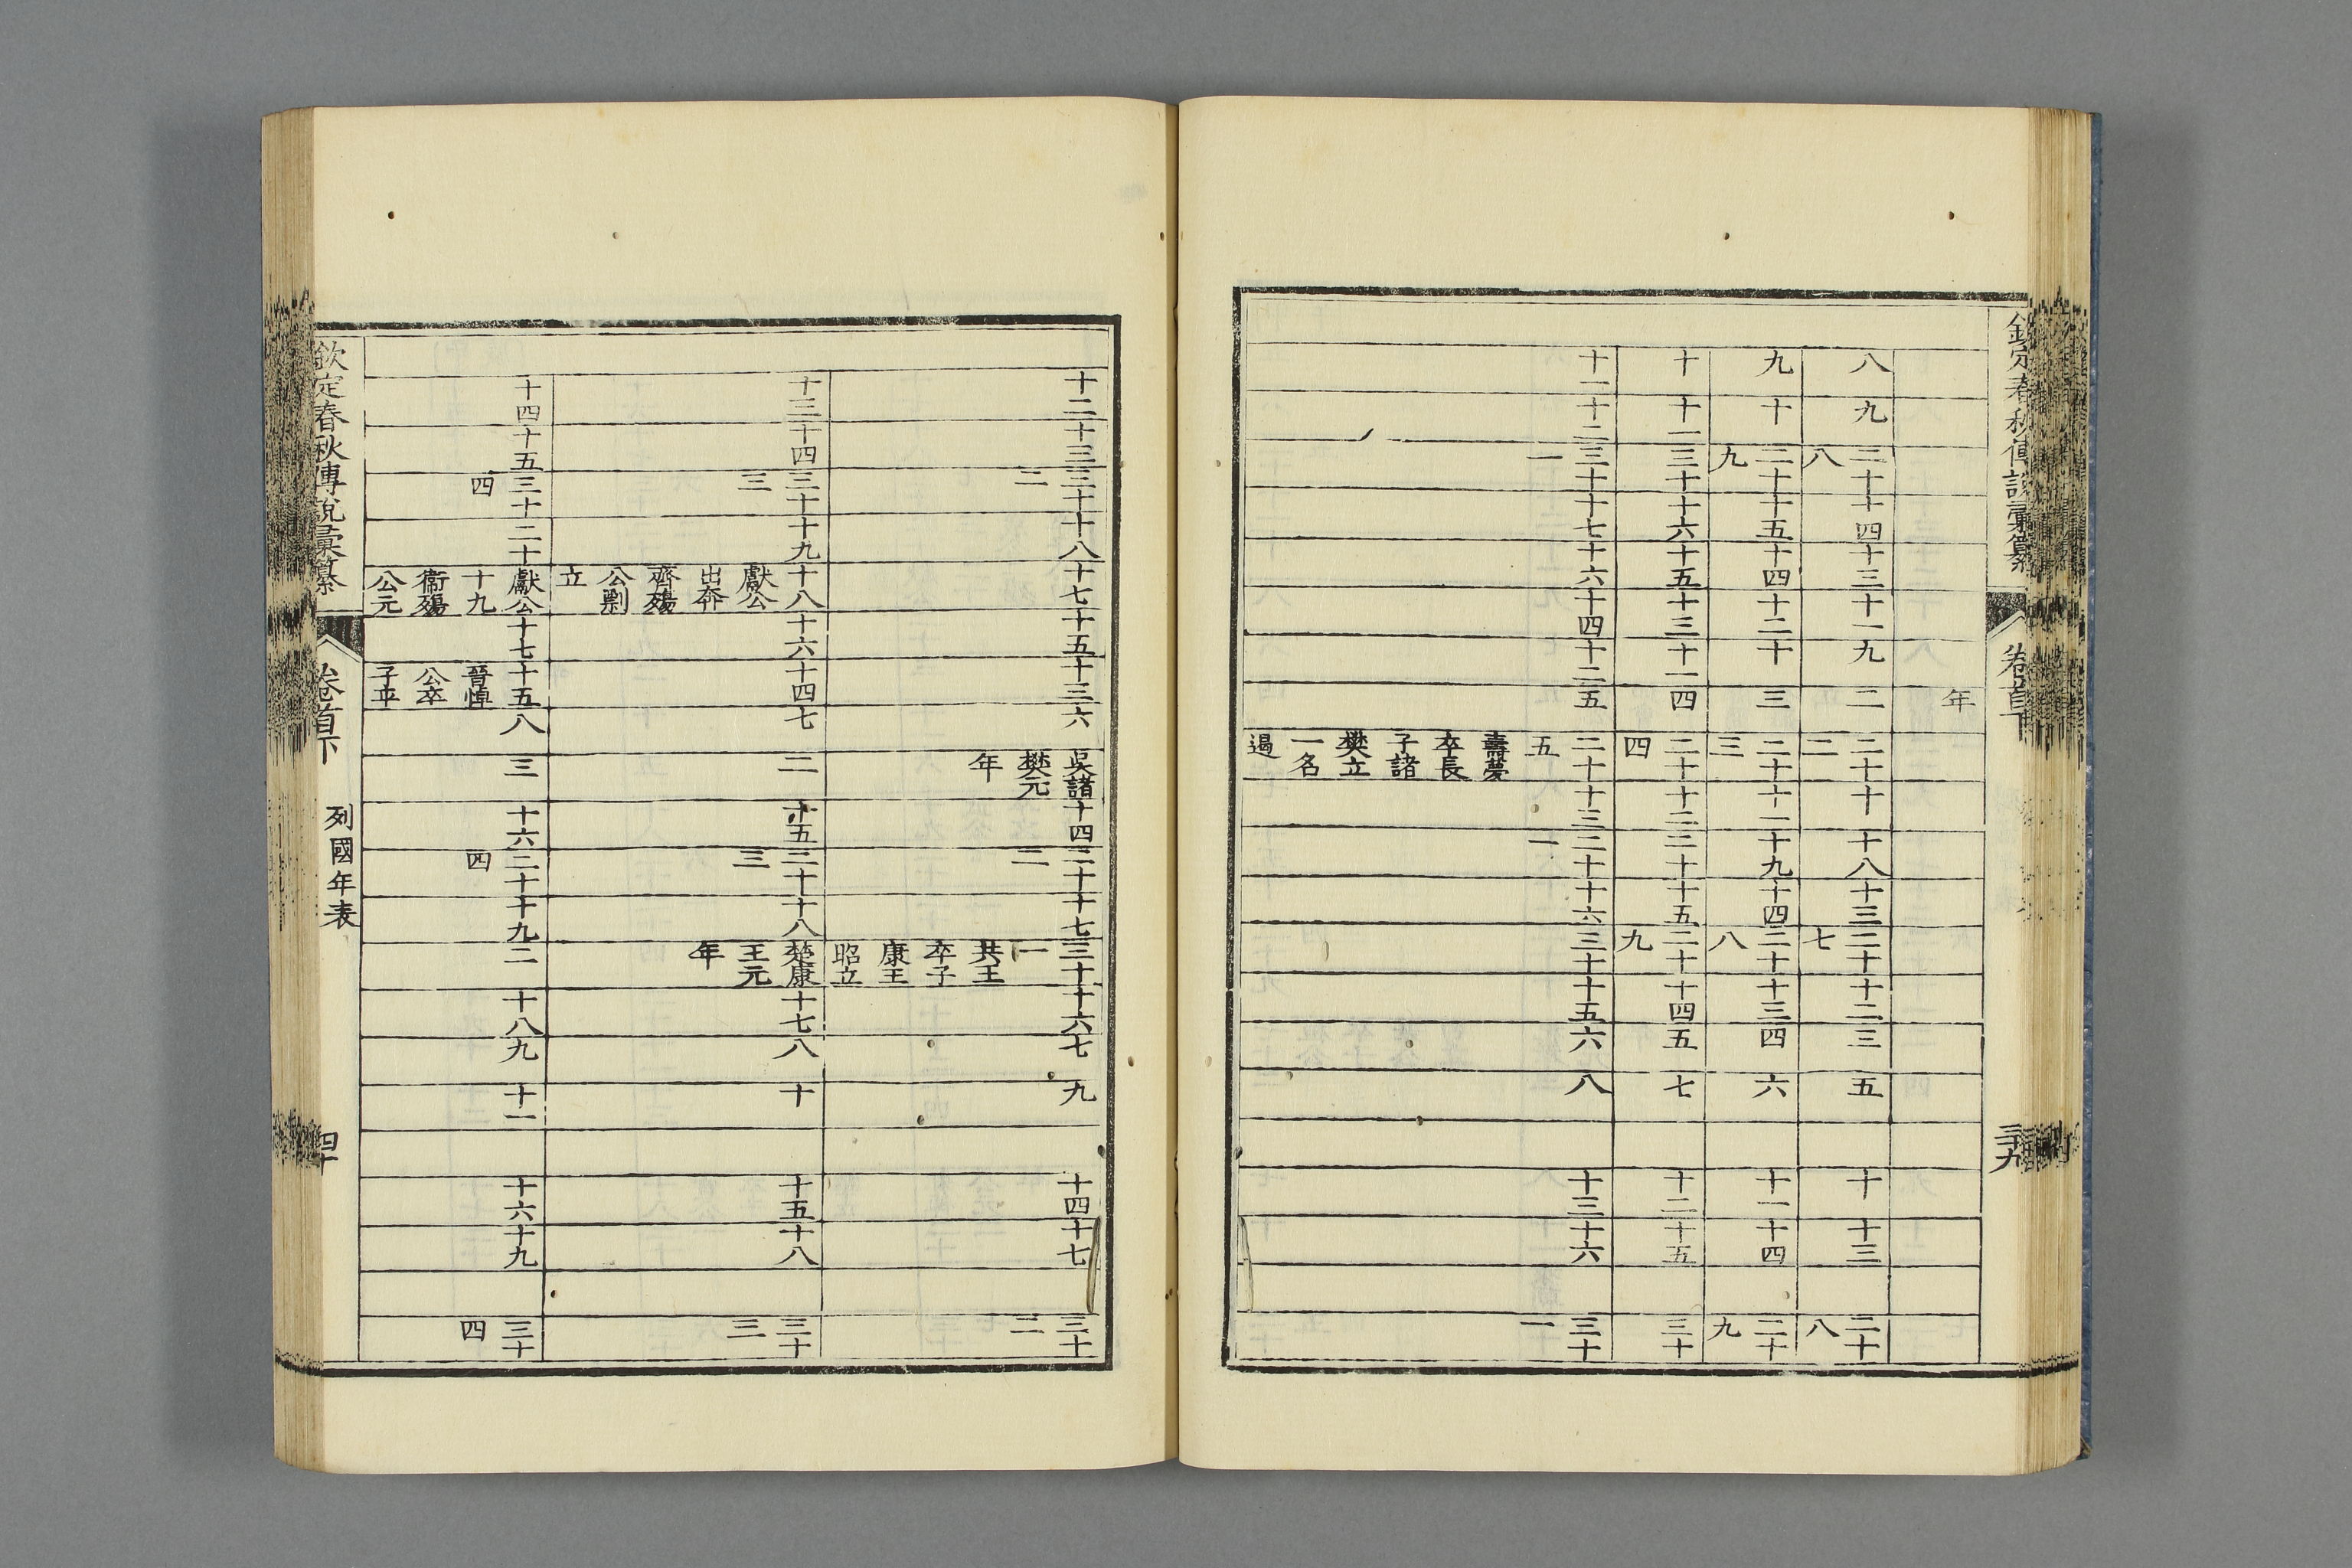 欽定春秋傳說彙纂
卷首下
三十九
年
八
九
二十八
十四
十三
十一
九
二
二十二
十
十八
十三
二十七
十二
三
五
十
十三
二十八
九
十
二十九
十五
十四
十二
十
三
二十三
十一
十九
十四
二十八
十三
四
六
十一
十四
二十九
十
十一
三十
十六
十五
十三
十一
四
二十四
十二
二十
十五
二十九
十四
五
七
十二
十五
三十
十一
十二
三十一
十七
十六
十四
十二
五
二十五
壽夢卒長子諸樊立一名遏
十三
二十一
十六
三十
十五
六
八
十三
十六
三十一
十二
十三
三十二
十八
十七
十五
十三
六
吳諸樊元年
十四
二十二
十七
三十一
共王卒子康王昭立
十六
七
九
十四
十七
三十二
十三
十四
三十三
十九
十八
獻公出奔齊殤公剽立
十六
十四
七
二
十五
二十三
十八
楚康王元年
十七
八
十
十五
十八
三十三
十四
十五
三十四
二十
獻公十九
衞殤公元
十七
十五
晉悼公卒子平
八
三
十六
二十四
十九
二
十八
九
十一
十六
十九
三十四
欽定春秋傳說彙纂
卷首下
列國年表
四十